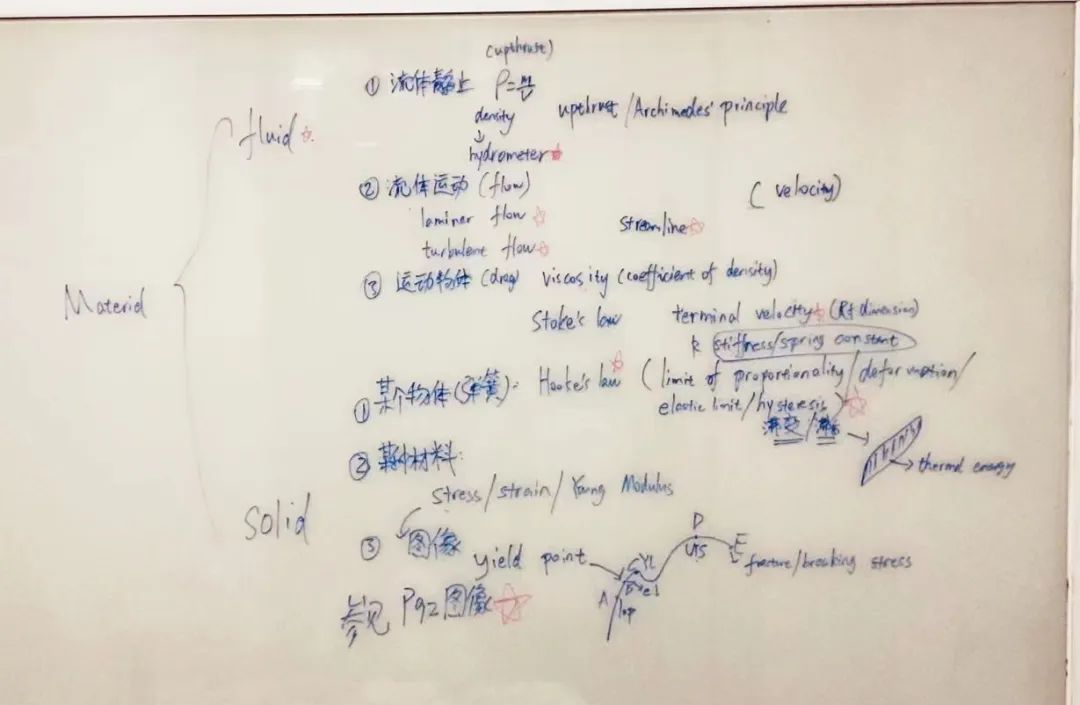 Material
fluid
(upthrust)
① 流体静止 ρ=m/v
density
hydrometer
upthrust/Archimedes' principle
② 流体运动 (flow)
(velocity)
laminar flow
streamline
turbulent flow
③ 运动物体 (drag) viscosity (coefficient of density)
Stoke's law
terminal velocity
k stiffness/spring constant
solid
① 某个物体(弹簧): Hooke's law (limit of proportionality/deformation/
elastic limit/hysteresis)
滞变/滞后
thermal energy
② 某种材料:
Stress/strain/Young Modulus
③ 图像
yield point
A
lop
B
el
C
YL
D
UTS
E
fracture/breaking stress
参见 P92图像